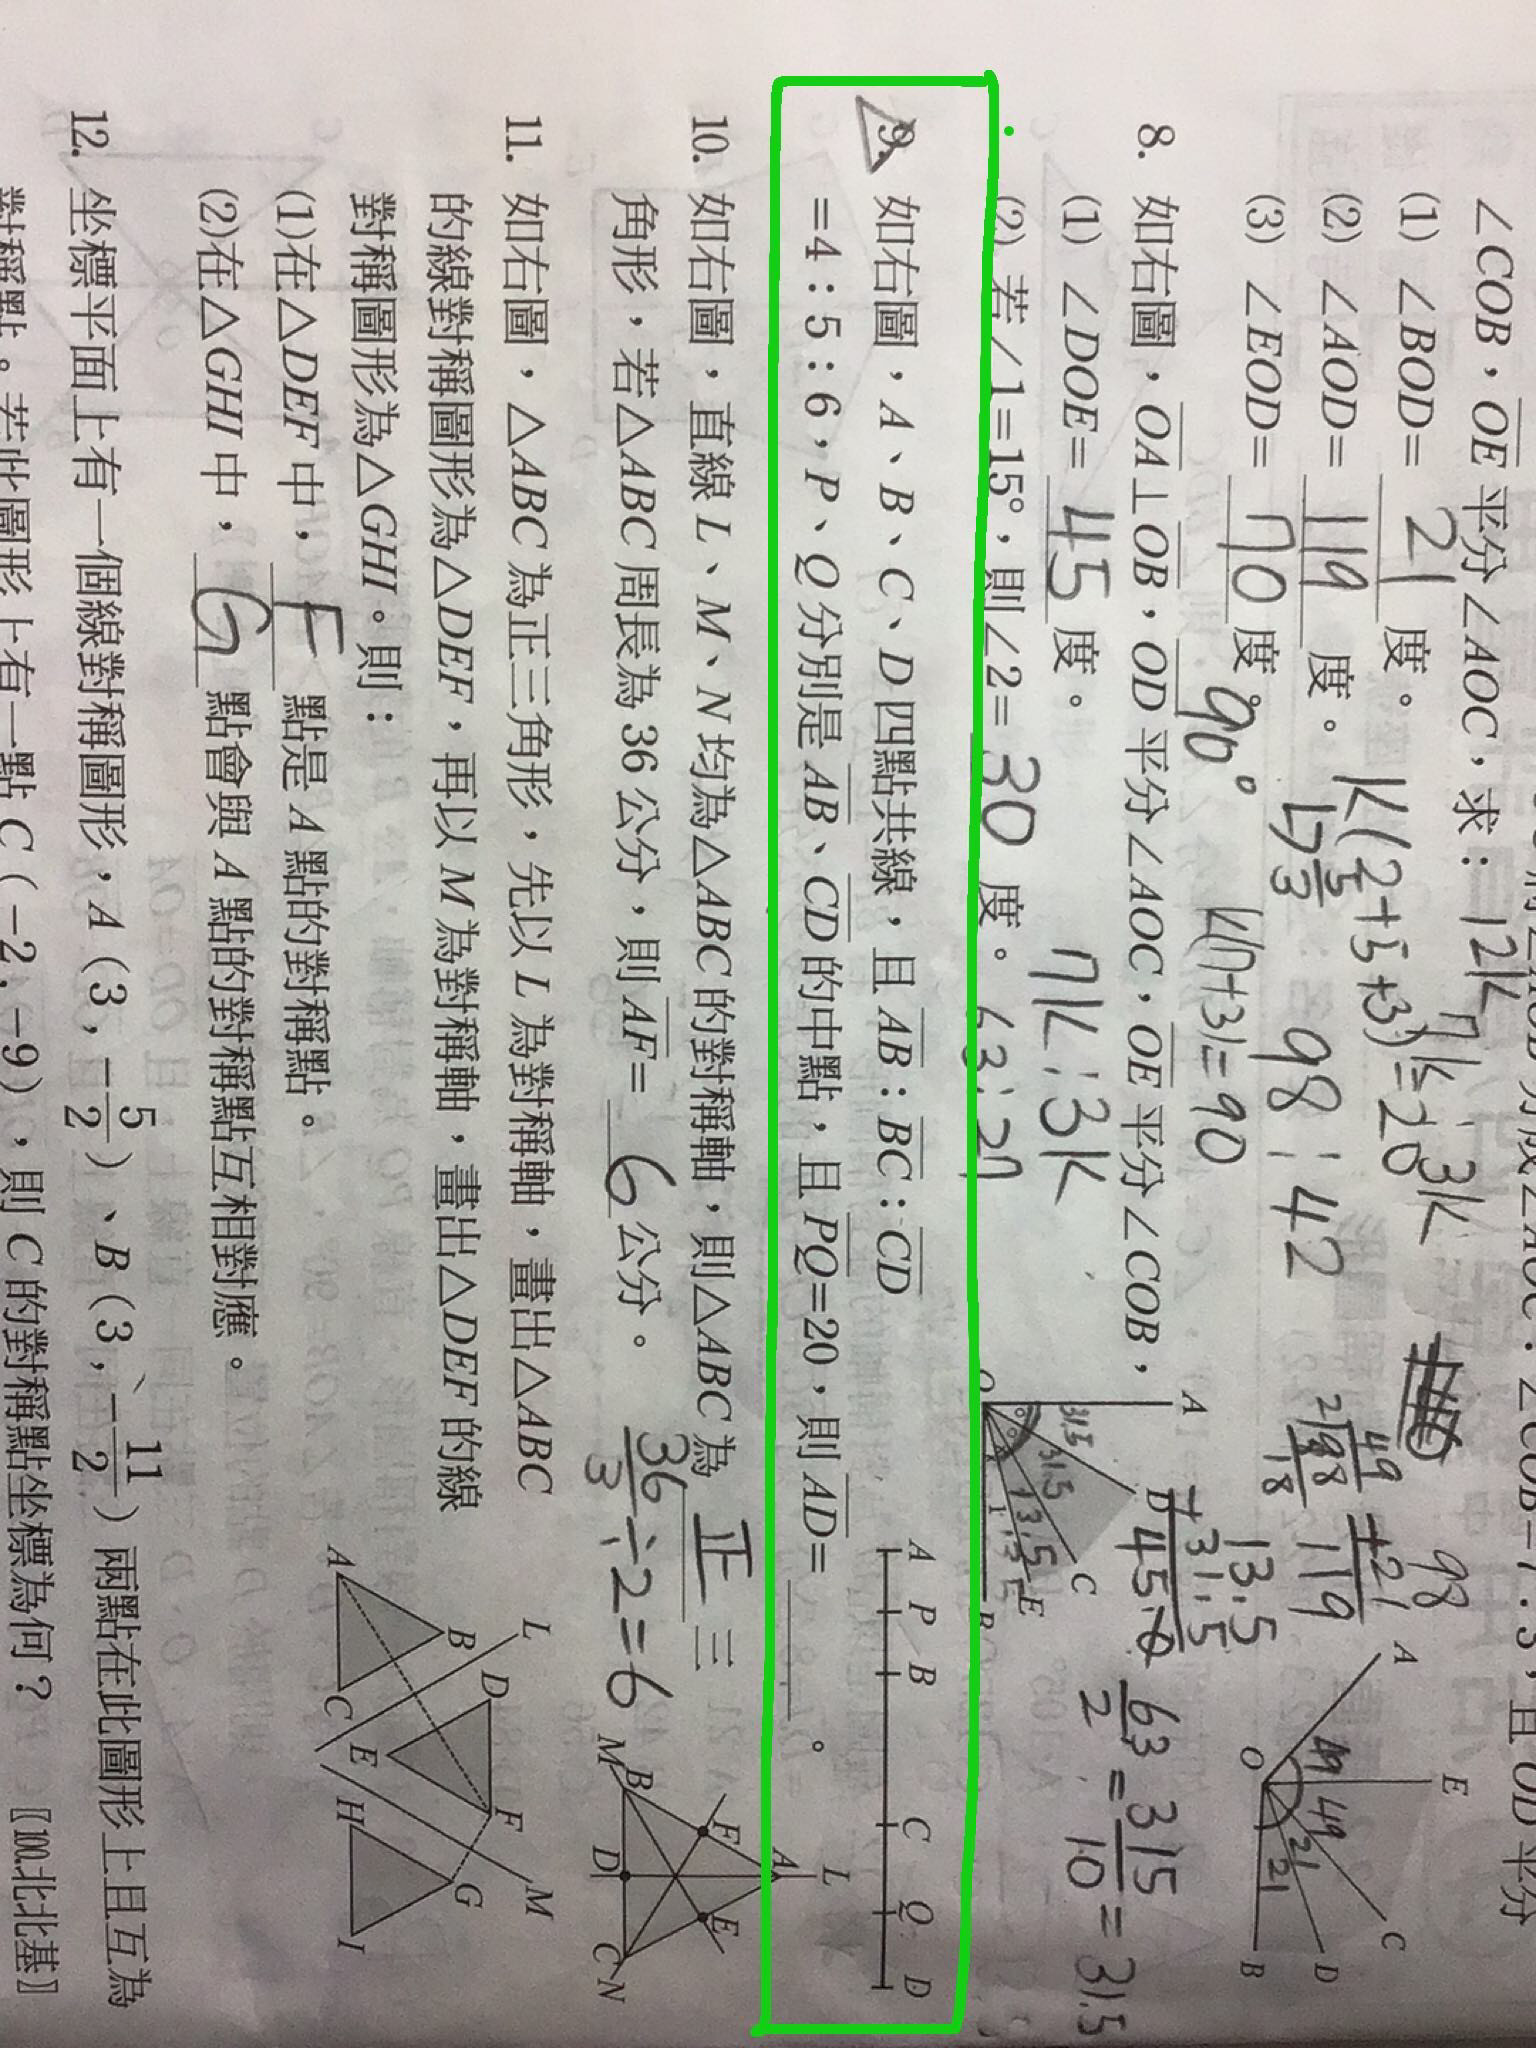 ∠COB，OE平分∠AOC，求：12k 7k：3k
(1) ∠BOD= 21 度。 k(2+5+3)=20
(2) ∠AOD= 119 度。
(3) ∠EOD= 70 度。 98：42
k(7+3)=90
98
+21
119
49
2 98
18
A E C D B O 49 49 21 21
8. 如右圖，OA⊥OB，OD平分∠AOC，OE平分∠COB，
90°
(1) ∠DOE= 45 度。 7k：3k
(2) 若∠1=15°，則∠2= 30 度。 63：27
A D C E B O 31.5 31.5 13.5
13.5
+31.5
45.0
63/2=315/10=31.5
9. 如右圖，A、B、C、D四點共線，且AB：BC：CD
=4：5：6，P、Q分別是AB、CD的中點，且PQ=20，則AD=＿＿＿。
A P B C Q D
10. 如右圖，直線L、M、N均為△ABC的對稱軸，則△ABC為 正 三
角形，若△ABC周長為36公分，則AF= 6 公分。
36/3÷2=6
L A F E B D C M N
11. 如右圖，△ABC為正三角形，先以L為對稱軸，畫出△ABC
的線對稱圖形為△DEF，再以M為對稱軸，畫出△DEF的線
對稱圖形為△GHI。則：
(1)在△DEF中， F 點是A點的對稱點。
(2)在△GHI中， G 點會與A點的對稱點互相對應。
L D F M B A C E H G I
12. 坐標平面上有一個線對稱圖形，A（3，-5/2）、B（3，-11/2）兩點在此圖形上且互為
對稱點。若此圖形上有一點C（-2，-9），則C的對稱點坐標為何？〚100.北北基〛